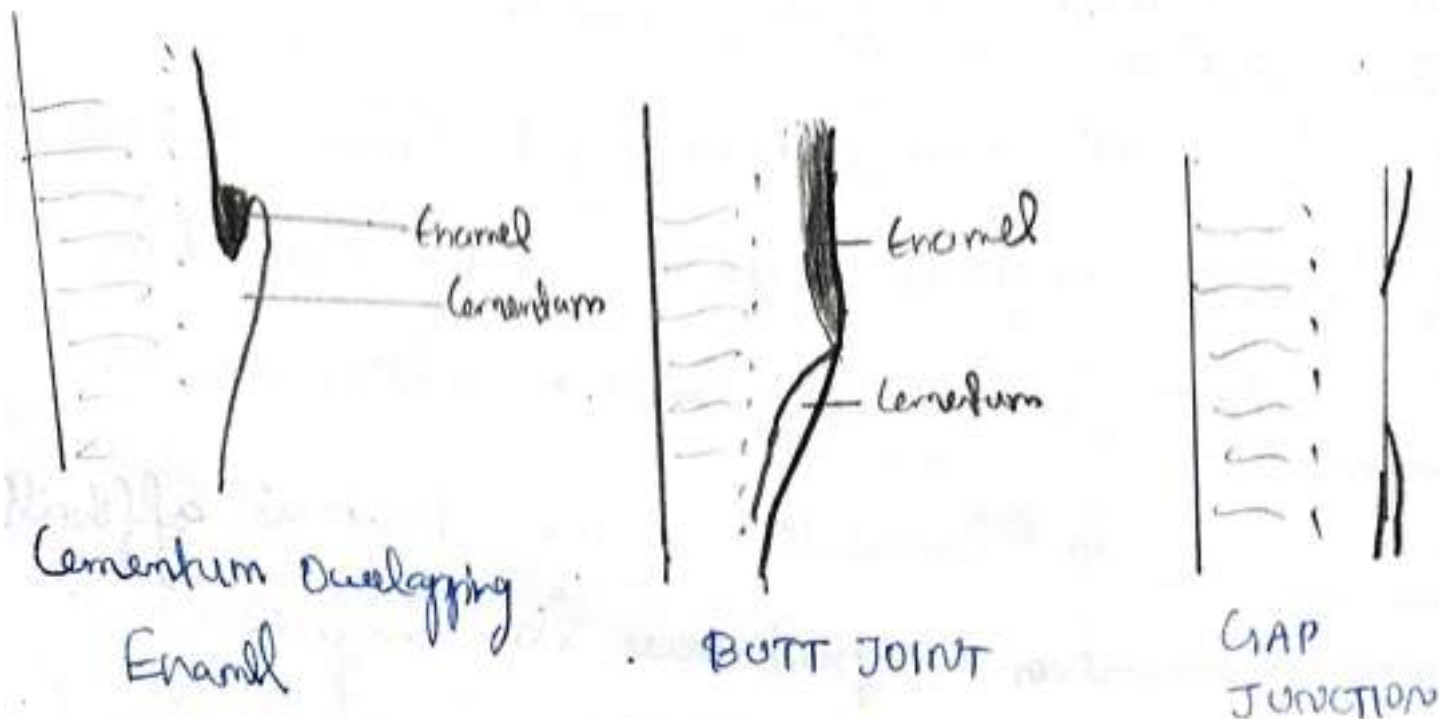 Enamel
Cementum
Cementum Overlapping
Enamel
Enamel
Cementum
BUTT JOINT
GAP
JUNCTION